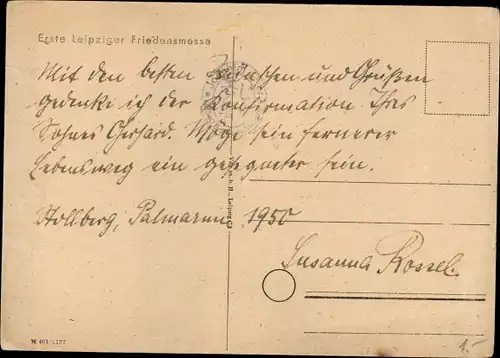 Erste Leipziger Friedensmesse
Mit den besten Wünschen und Grüßen
gedenke ich der Konfirmation Ihres
Sohnes Gerhard. Möge sein fernerer
Lebensweg ein gesegneter sein.
Stollberg, Palmarum 1950
Susanna Rossel.
M 401
1.-